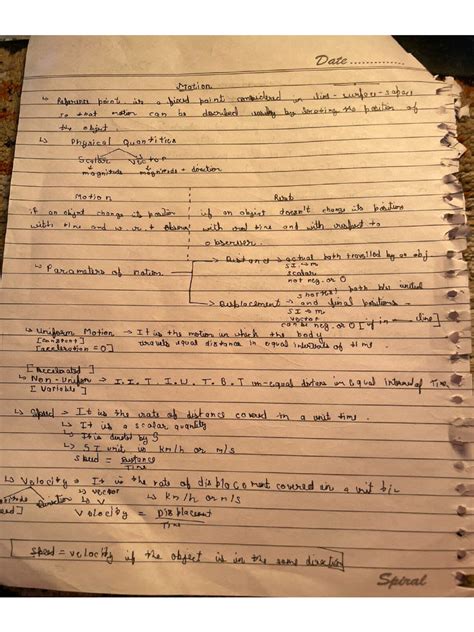 Date ..............
Motion
↳ Reference point is a fixed point considered in line - surface - space
so that motion can be described easily by locating the position of
the object
↳ Physical Quantities
Scalar Vector
magnitude magnitude + direction
Motion Rest
if an object change its position if an object doesn't change its position
with time and w.r.t observ with real time and with respect to
observer.
↳ Parameters of motion → Distance → actual path travelled by an obj
SI → m
scalar
not neg. or 0
→ Displacement → shortest path b/w initial
and final positions -
SI → m
vector
can be neg. or 0 [if in line]
↳ Uniform Motion → It is the motion in which the body
[constant] travels equal distance in equal intervals of time.
[acceleration = 0]
[Accelerated]
↳ Non-Uniform → I. I. T. I. W. T. B. T un-equal disters in equal interval of Time
[Variable]
↳ Speed → It is the rate of distance covered in a unit time.
↳ It is a scalar quantity
↳ It is denoted by S
↳ SI unit is km/h or m/s
speed = Distance
Time
↳ Velocity → It is the rate of displacement covered in a unit
direction ↳ vector ↳ km/h or m/s
↳ V
Velocity = Displacement
Time
speed = velocity if the object is in the same direction
Spiral